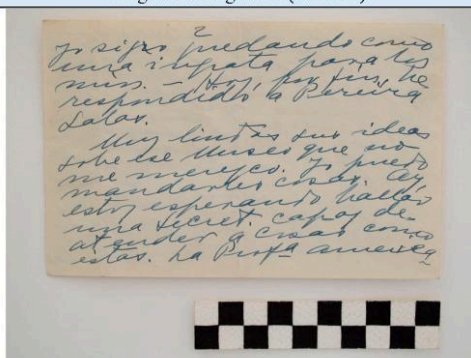 2
Yo sigo quedando como
una ingrata para los
míos. – Hoy, por fin, he
respondido a Pereira
Salas.
Muy lindas sus ideas
sobre ese Museo que no
me merezco. Yo puedo
mandarles cosas. Ay,
estoy esperando hallar
una secret. capaz de
atender a cosas como
estas. La Profª america